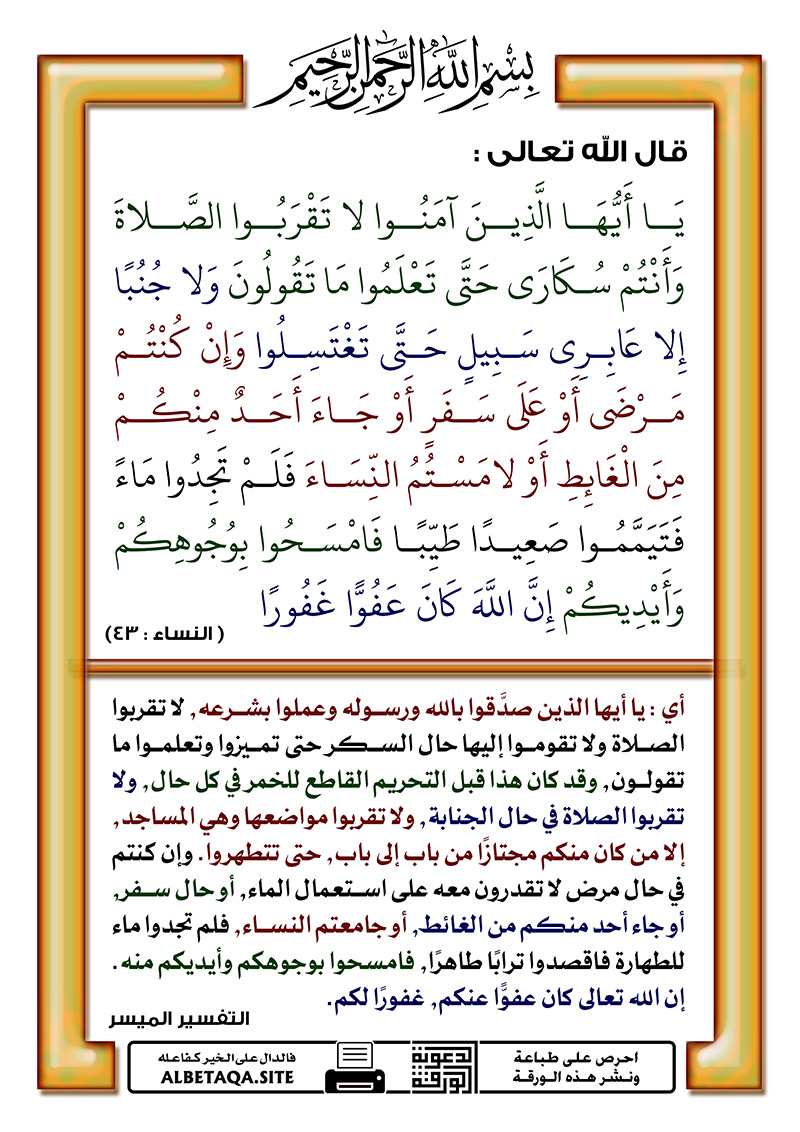 بِسْمِ اللَّهِ الرَّحْمَنِ الرَّحِيمِ
قال الله تعالى :
يَا أَيُّهَا الَّذِينَ آمَنُوا لا تَقْرَبُوا الصَّلاةَ
وَأَنْتُمْ سُكَارَى حَتَّى تَعْلَمُوا مَا تَقُولُونَ وَلا جُنُبًا
إِلا عَابِرِي سَبِيلٍ حَتَّى تَغْتَسِلُوا وَإِنْ كُنْتُمْ
مَرْضَى أَوْ عَلَى سَفَرٍ أَوْ جَاءَ أَحَدٌ مِنْكُمْ
مِنَ الْغَائِطِ أَوْ لامَسْتُمُ النِّسَاءَ فَلَمْ تَجِدُوا مَاءً
فَتَيَمَّمُوا صَعِيدًا طَيِّبًا فَامْسَحُوا بِوُجُوهِكُمْ
وَأَيْدِيكُمْ إِنَّ اللَّهَ كَانَ عَفُوًّا غَفُورًا
( النساء : ٤٣)
أي : يا أيها الذين صدَّقوا بالله ورسوله وعملوا بشرعه, لا تقربوا
الصلاة ولا تقوموا إليها حال السكر حتى تميزوا وتعلموا ما
تقولون, وقد كان هذا قبل التحريم القاطع للخمر في كل حال, ولا
تقربوا الصلاة في حال الجنابة, ولا تقربوا مواضعها وهي المساجد,
إلا من كان منكم مجتازًا من باب إلى باب, حتى تتطهروا. وإن كنتم
في حال مرض لا تقدرون معه على استعمال الماء, أو حال سفر,
أو جاء أحد منكم من الغائط, أو جامعتم النساء, فلم تجدوا ماء
للطهارة فاقصدوا ترابًا طاهرًا, فامسحوا بوجوهكم وأيديكم منه.
إن الله تعالى كان عفوًّا عنكم, غفورًا لكم.
التفسير الميسر
احرص على طباعة
ونشر هذه الورقة
الدعوية
الورقة
فالدال على الخير كفاعله
ALBETAQA.SITE